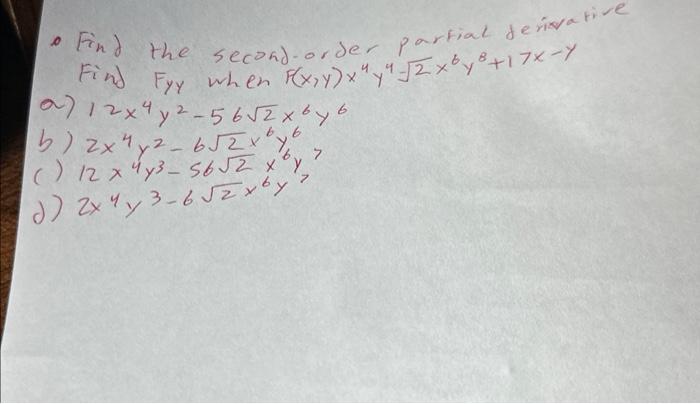 • Find the second-order partial derivative
Find Fyy when F(x,y) x⁴y⁴-√2x⁶y⁸+17x-y
a) 12x⁴y²-56√2x⁶y⁶
b) 2x⁴y²-6√2x⁶y⁶
c) 12x⁴y³-56√2x⁶y⁷
d) 2x⁴y³-6√2x⁶y⁷